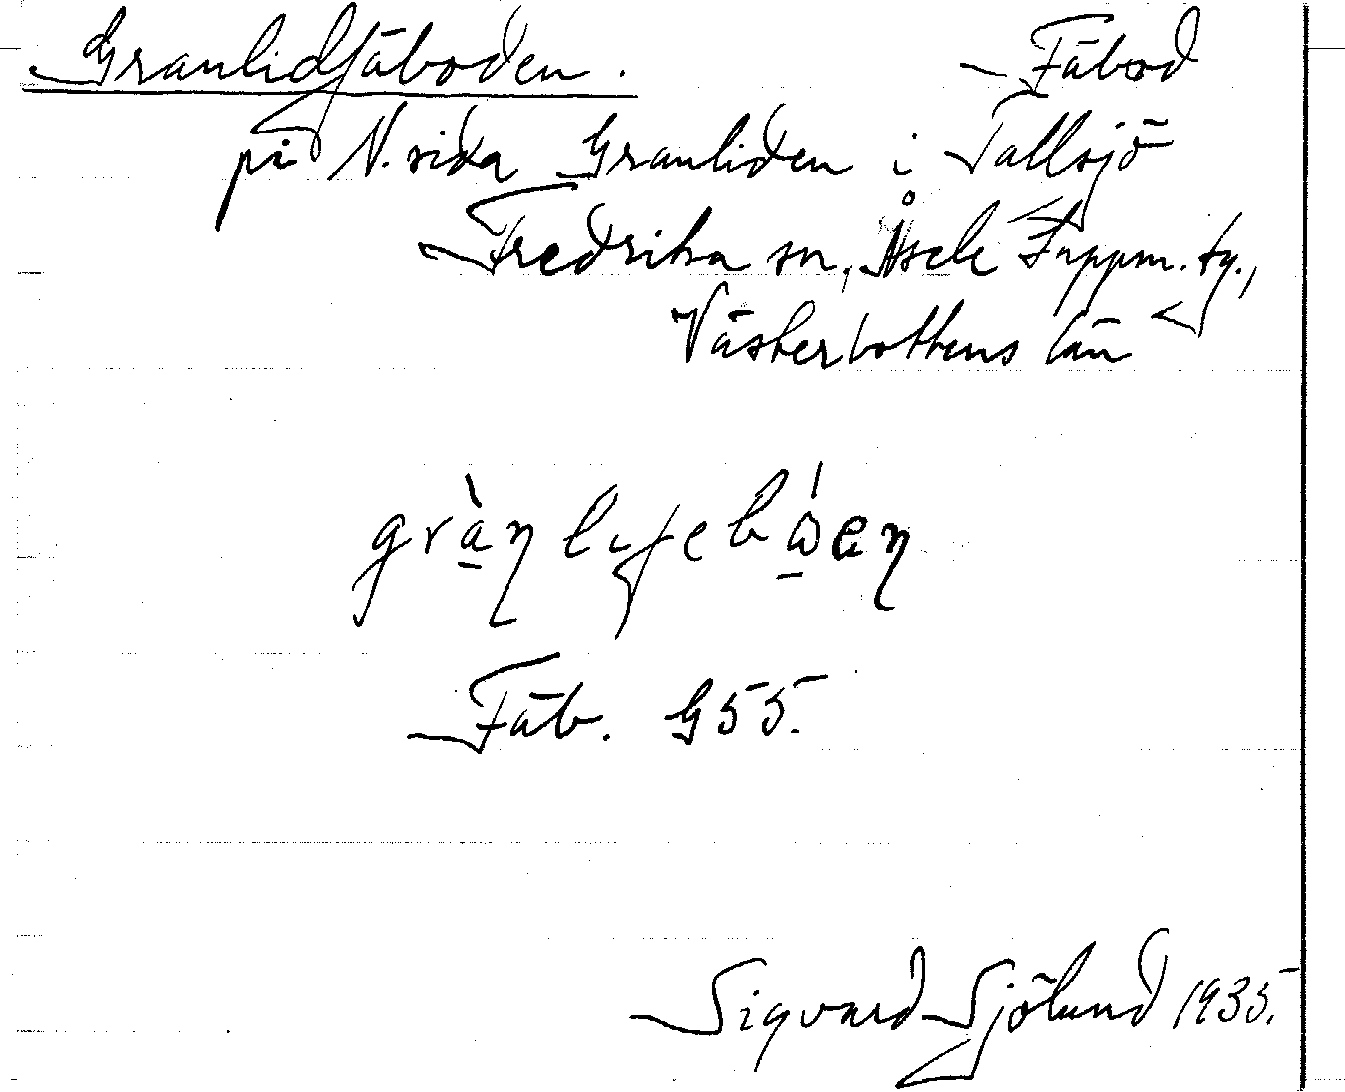 Granlidfäboden. Fäbod
på N. sida Granliden i Tallsjö
Fredrika sn, Åsele Lappm. tg.,
Västerbottens län
Fäb. G55.
Sigvard Sjölund 1935.